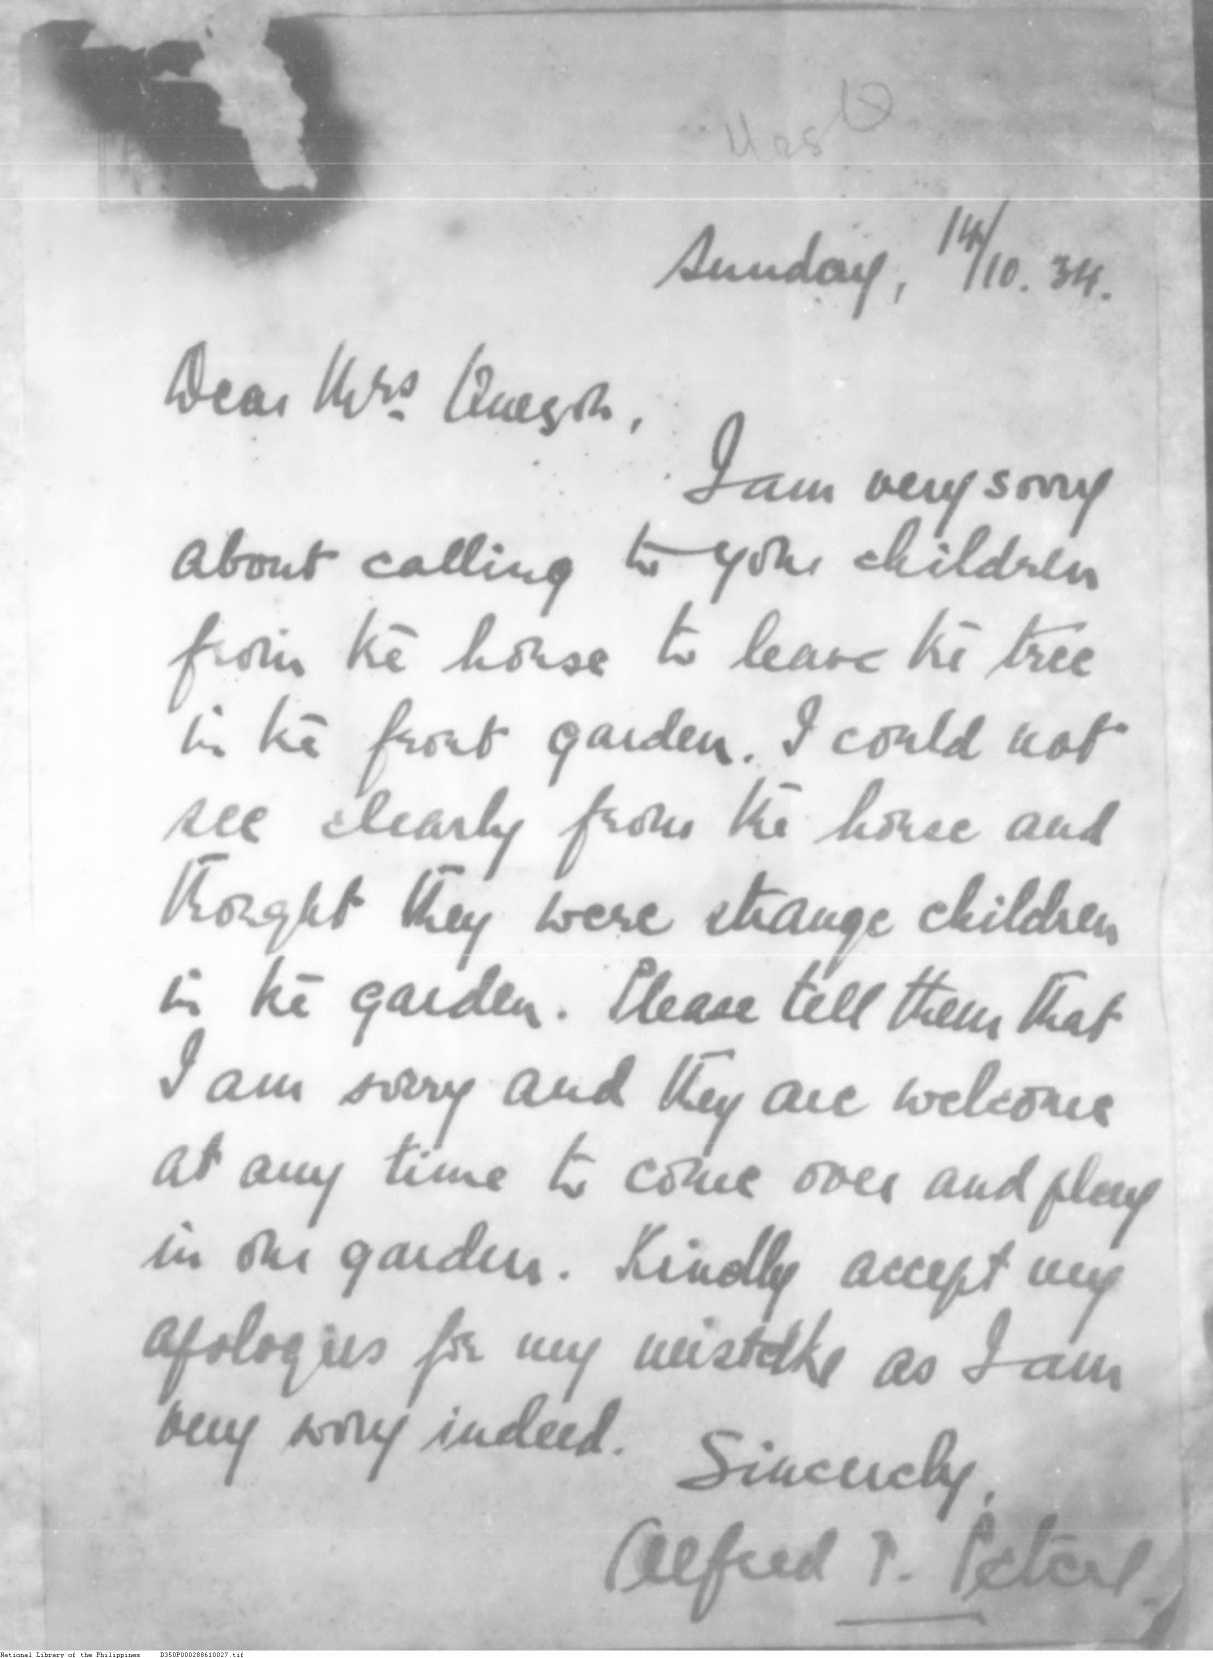 Mrs Q
Sunday, 14/10. 34.
Dear Mrs. Quezon,
I am very sorry
about calling to your children
from the house to leave the tree
in the front garden. I could not
see clearly from the house and
thought they were strange children
in the garden. Please tell them that
I am sorry and they are welcome
at any time to come over and play
in our garden. Kindly accept my
apologies for my mistake as I am
very sorry indeed.
Sincerely,
Alfred P.
National Library of the Philippines D350P000288610027.tif